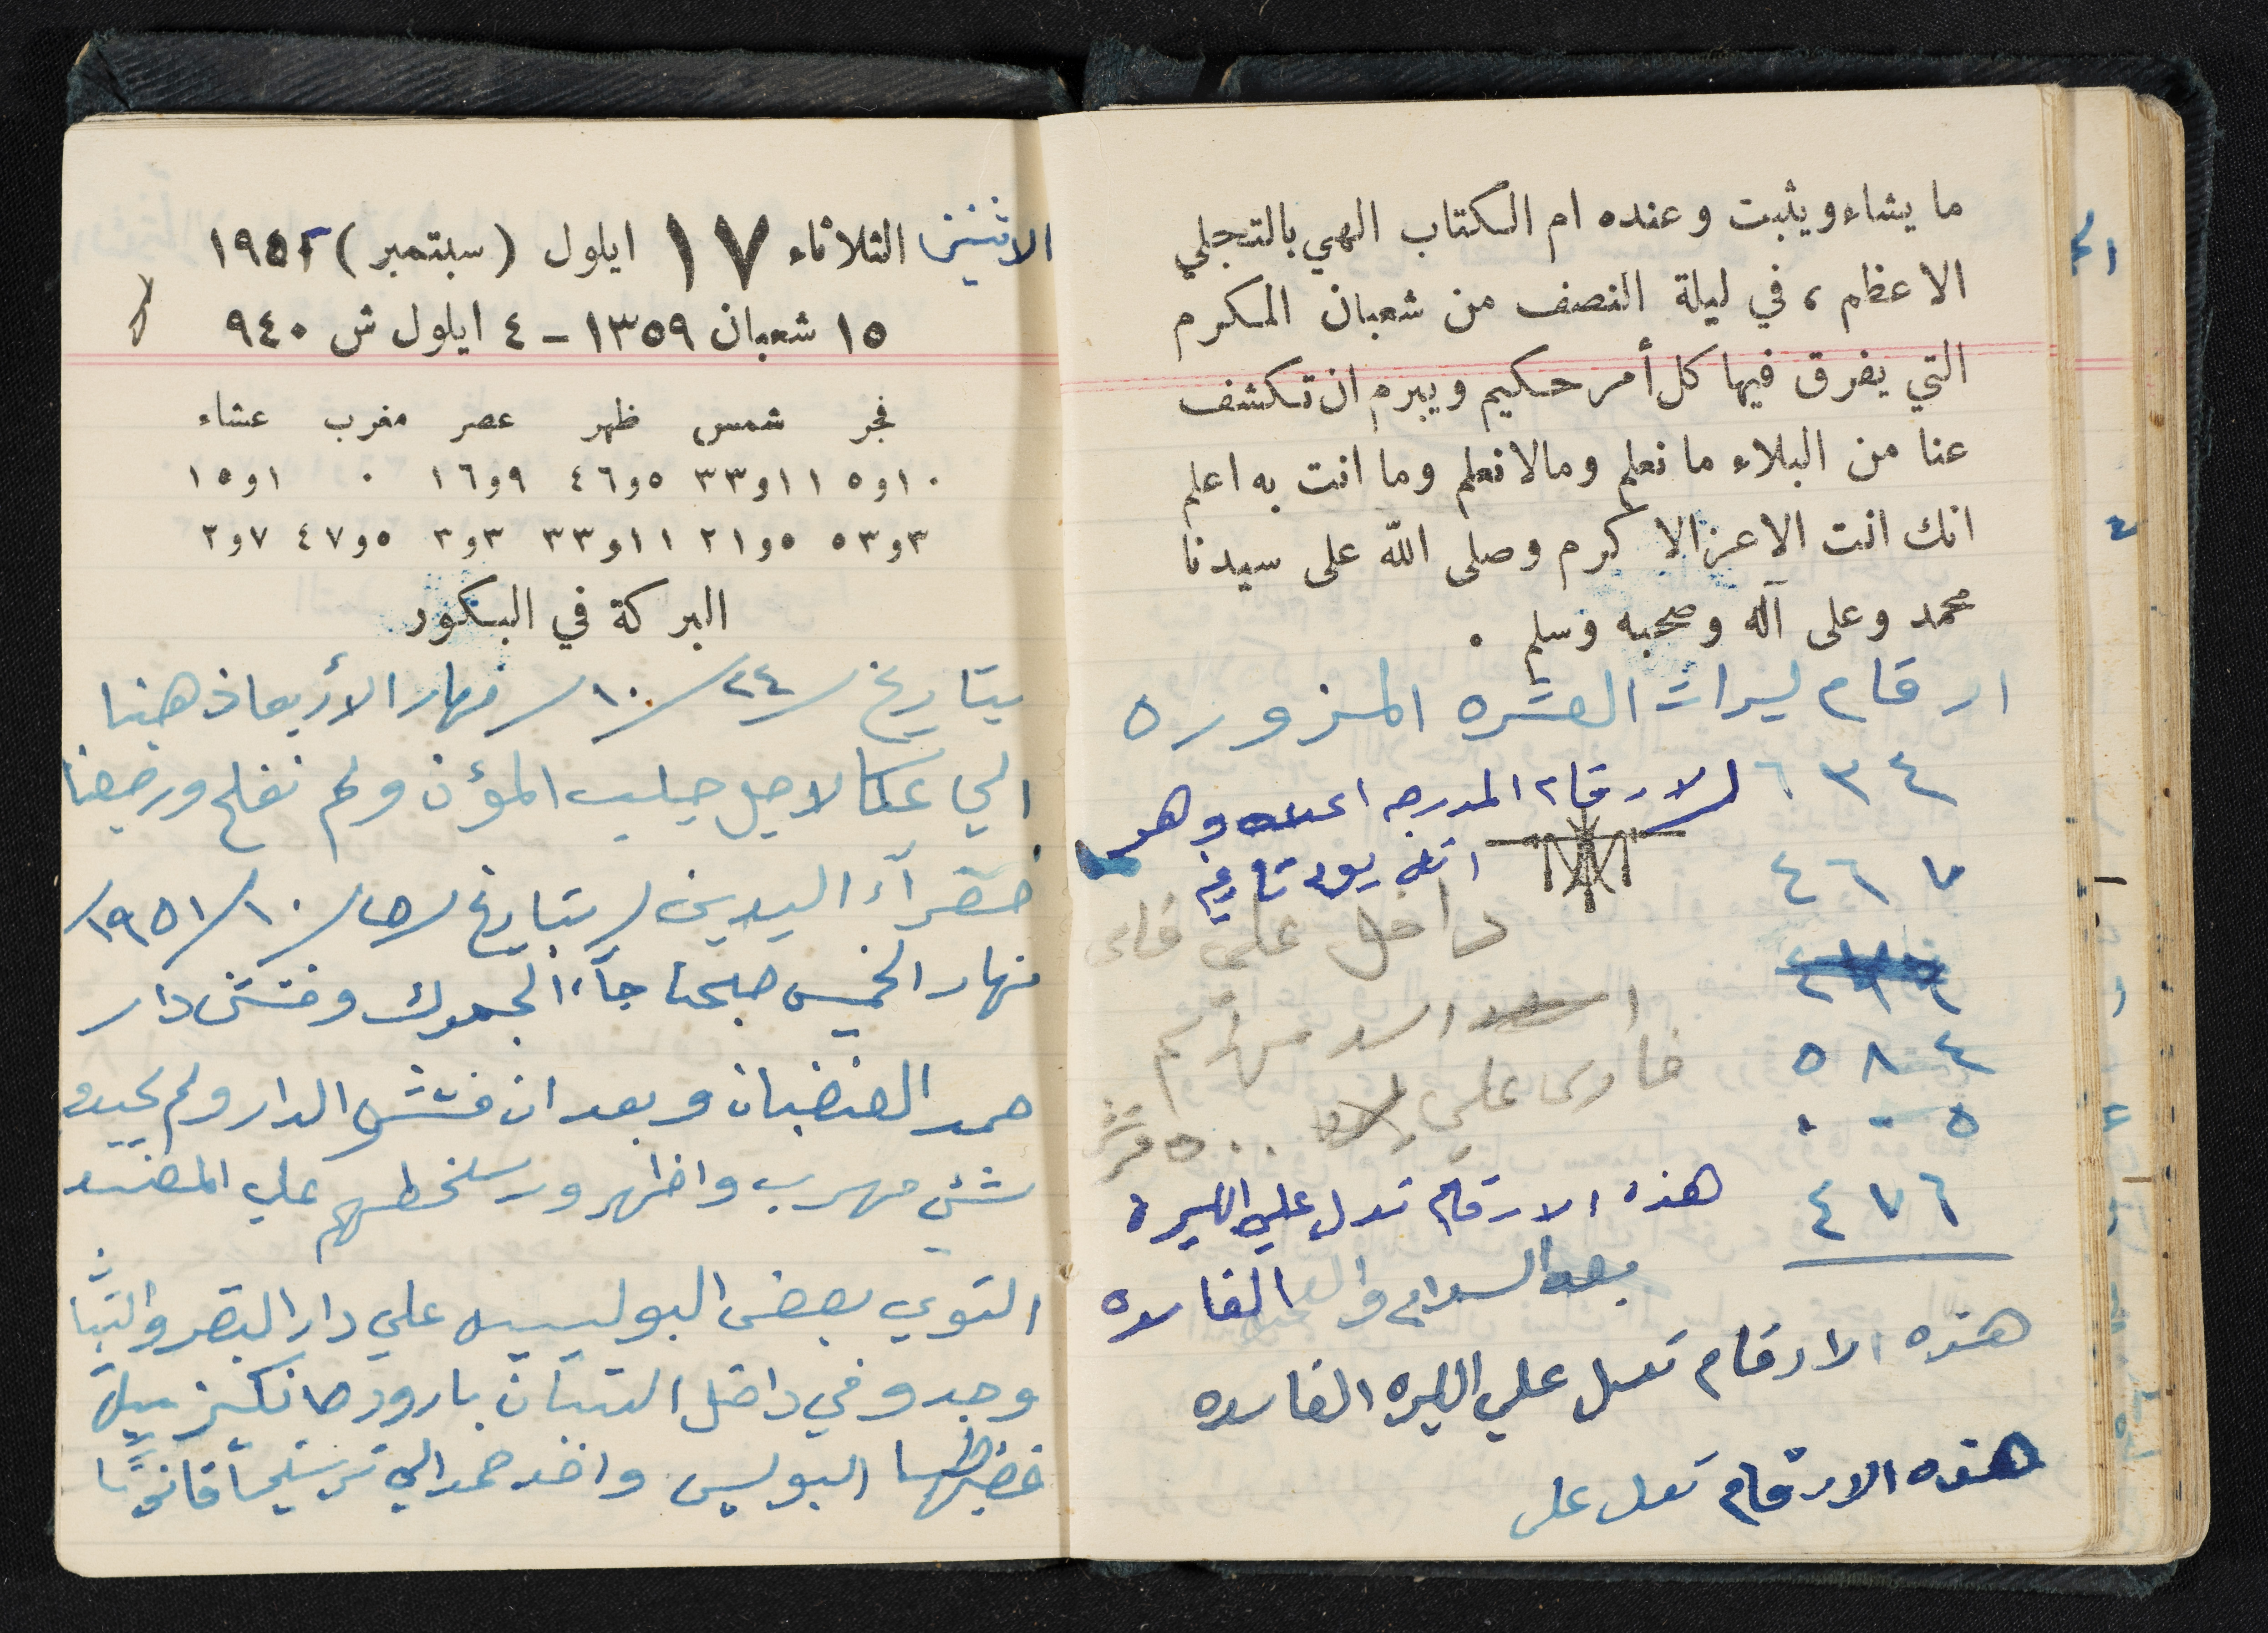 ما يشاء ويثبت وعنده ام الكتاب الهي بالتجلي
الاعظم ، في ليلة النصف من شعبان المكرم
التي يفرق فيها كل أمر حكيم ويبرم ان تكشف
عنا من البلاء ما نعلم ومالا نعلم وما انت به اعلم
انك انت الاعز الاكرم وصلى الله على سيدنا
محمد وعلى آله وصحبه وسلم .
ارقام ليرات العشره المزوره
٦٣٤
الارقام المدرجه اعلاه وهو
٤٦٧
داخل على
٥٨٤
علي ٥٠٠ قرش
٠٠٥
٤٧٦
هذه الارقام تدل علي الليرة
الفاسده
هذه الارقام تدل علي الليره الفاسده
هذه الارقام تدل على
الاثنين الثلاثاء ١٧ ايلول (سبتمبر) ١٩٥٢
١٥ شعبان ١٣٥٩ - ٤ ايلول ش ٩٤٠
فجر شمس ظهر عصر مغرب عشاء
١٠و٥ ١١و٣٣ ٥و٤٦ ٩و١٦ ٠ ١و١٥
٣و٥٣ ٥و٢١ ١١و٣٣ ٣و٣ ٥و٤٧ ٧و٢
البركة في البكور
بتاريخ /٢٤/١٠/ نهار الأربعا ذهبنا
الي عكا لاجل جيلب المؤن ولم نفلح ورجعنا
صفرآء اليدين / بتاريخ /٢٥/١٠/١٩٥١/
نهار الخميس صبحنا جآء الجمرك وفتش دار
حمد الغضبان وبعد ان فتش الدار ولم يجيدو
شئي مهرب واظهرو سخطهم علي
التوي بعض البوليس علي دار البقر والتبان
وجدو في داخل التبان بارودة انكليزييه
فضبطها البوليس واخد حمد الي ترشيحا